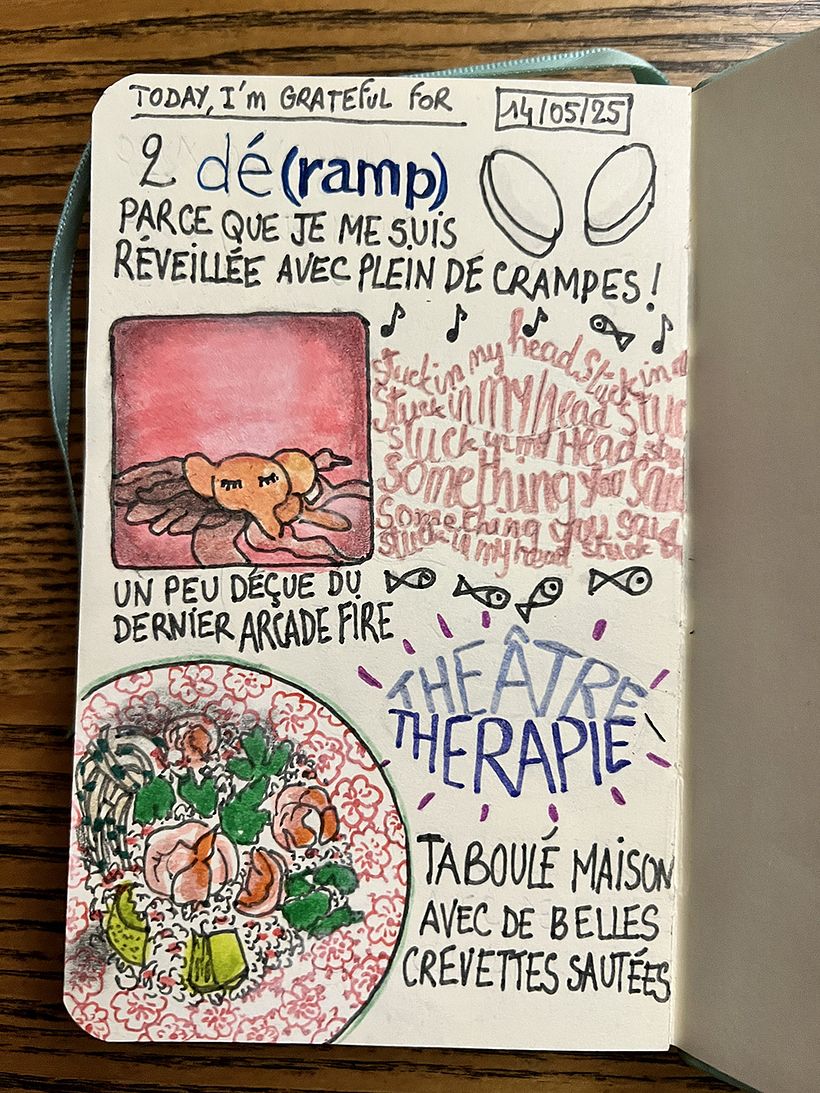 TODAY, I'm GRATEFUL FOR
14/05/25
2 dé(ramp)
PARCE QUE JE ME SUIS
RÉVEILLÉE AVEC PLEIN DE CRAMPES !
stuck in my head, stuck in
Stuck in MY head stuc
stuck in my Head
something you said
Something you said
stuck in my head stuck
UN PEU DÉÇUE DU
DERNIER ARCADE FIRE
THEÂTRE
THERAPIE
TABOULÉ MAISON
AVEC DE BELLES
CREVETTES SAUTÉES